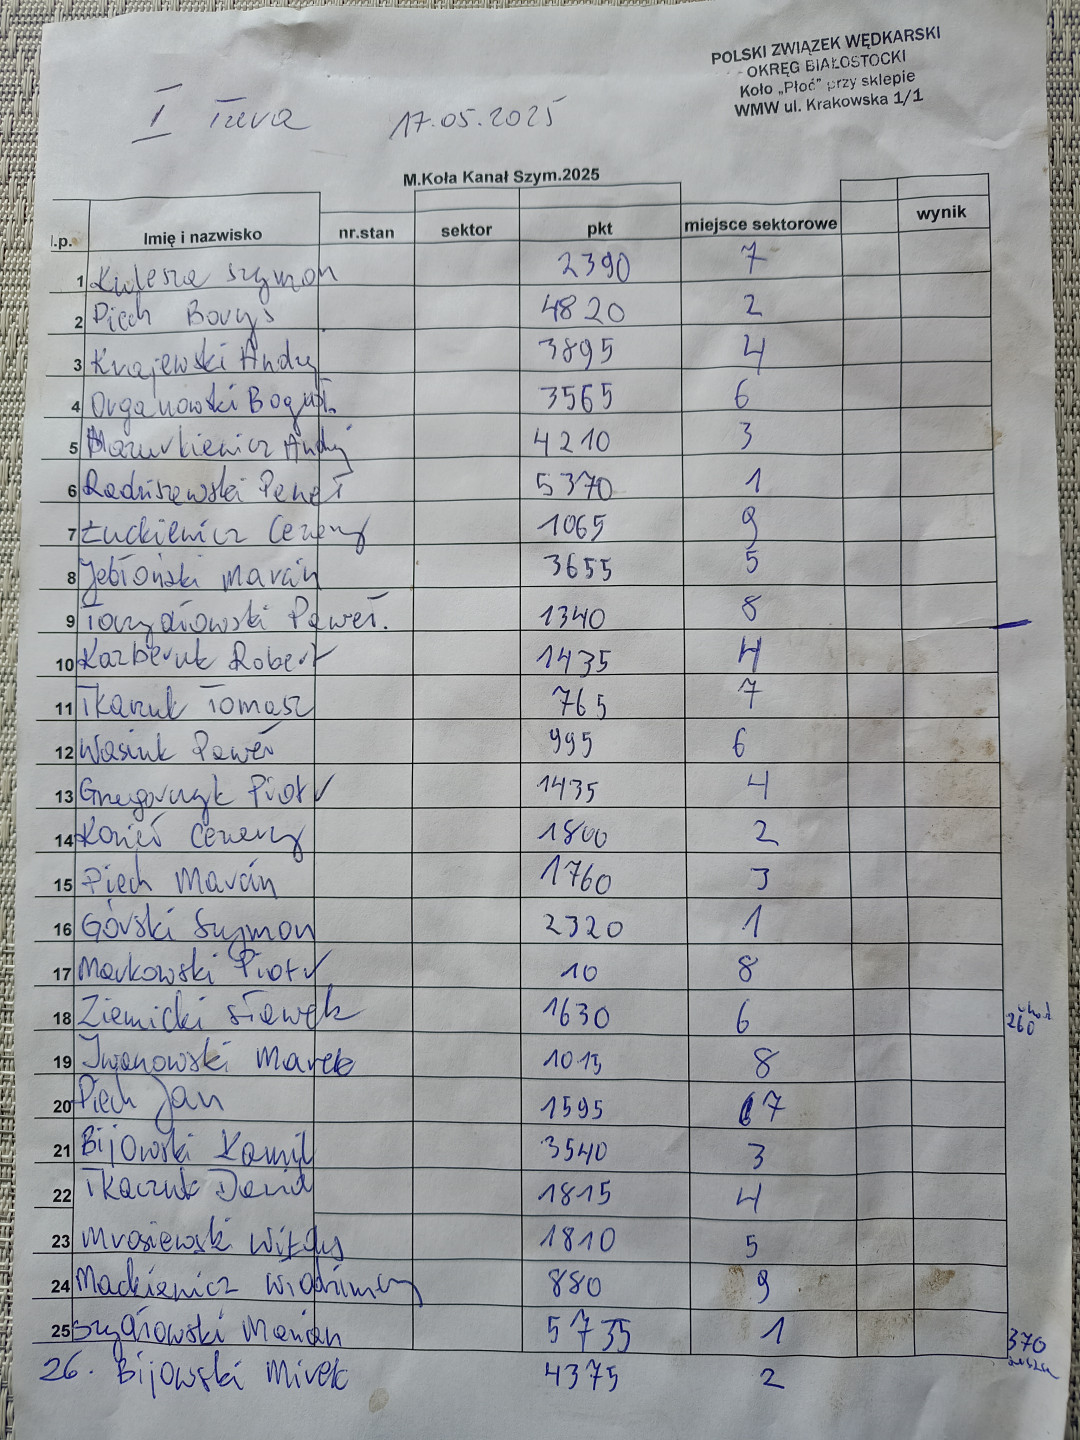 POLSKI ZWIĄZEK WĘDKARSKI
OKRĘG BIAŁOSTOCKI
Koło „Płoć" przy sklepie
WMW ul. Krakowska 1/1
I Tura 17.05.2025
M.Koła Kanał Szym.2025
l.p. Imię i nazwisko nr.stan sektor pkt miejsce sektorowe wynik
1 Kulesza Szymon 2390 7
2 Piech Borys 4820 2
3 Krajewski Andrz 3895 4
4 Organowski Bogusł. 3565 6
5 Mazurkiewicz Andrzej 4210 3
6 Radziszewski Paweł 5370 1
7 Łuckiewicz Cezary 1065 9
8 Jabłoński Marcin 3655 5
9 Toczydłowski Paweł. 1340 8
10 Kazberuk Robert 1435 4
11 Tkaczuk Tomasz 765 7
12 Wasiuk Paweł 995 6
13 Grzegorczyk Piotr 1435 4
14 Konieś Cezary 1800 2
15 Piech Marcin 1760 3
16 Górski Szymon 2320 1
17 Markowski Piotr 10 8
18 Ziemicki Sławek 1630 6 260
19 Iwanowski Marek 1015 8
20 Piech Jan 1595 7
21 Bijowski Kamil 3540 3
22 Tkaczuk Dawid 1815 4
23 Mrosiewski Witus 1810 5
24 Mackiewicz Włodzimierz 880 9
25 Szydłowski Marian 5735 1 370
26. Bijowski Mirek 4375 2